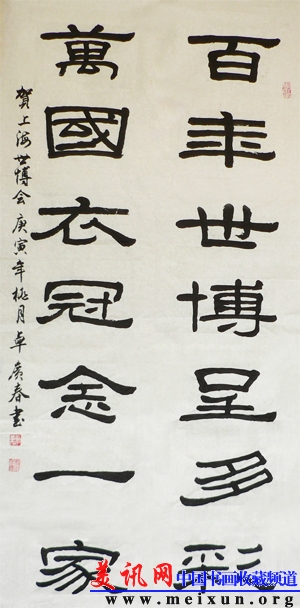 百年世博呈多彩
萬國衣冠念一家
賀上海世博会庚寅年桃月卓廣春书
美讯网
中国书画收藏频道
www.meixun.org